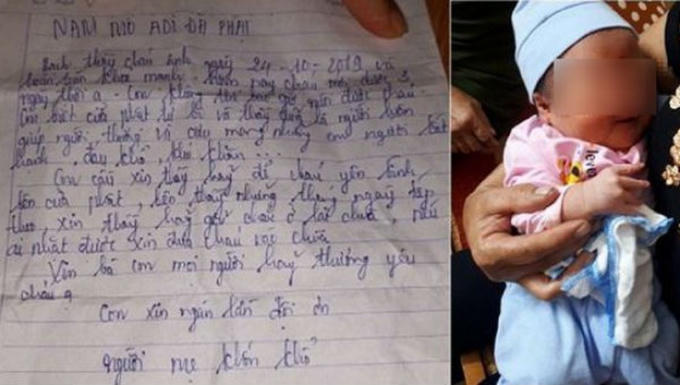 NAM MÔ ADI ĐÀ PHẬT
Bạch thầy cháu sinh ngày 24-10-2019 và
hoàn toàn khỏe mạnh. Hôm nay cháu mới được 3
ngày thôi ạ. Con không thể giữ được cháu.
Con biết cửa phật từ bi và thầy cũng là người luôn
giúp người, thương và cưu mang những con người bất
hạnh, đau khổ, khó khăn...
Con cầu xin thầy hãy để cháu yên bình
bên cửa phật, bên thầy những tháng ngày tiếp
theo, xin thầy hãy giữ cháu ở lại chùa, nếu
ai nhặt được xin đưa cháu vào chùa
Xin bà con mọi người hãy thương yêu
cháu ạ
Con xin ngàn lần đội ơn
Người mẹ khốn khổ